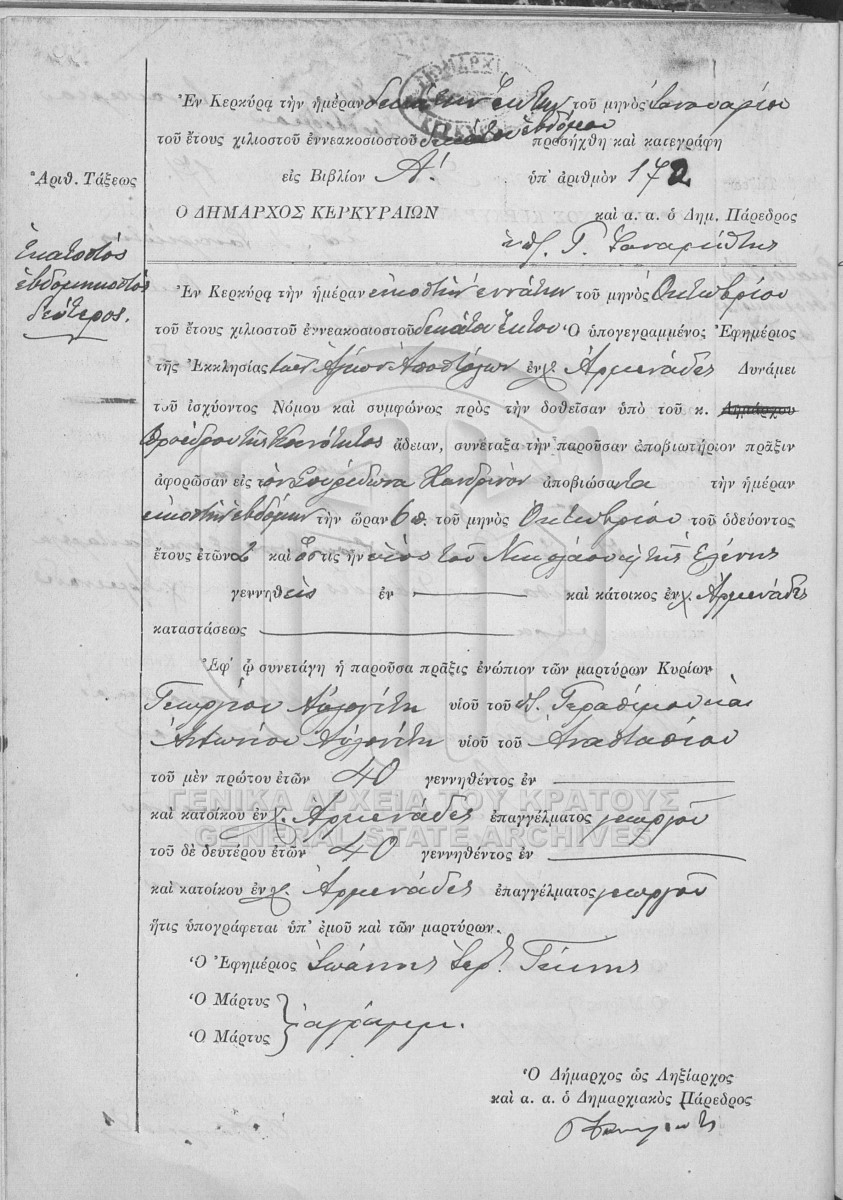 ΔΗΜΑΡΧ
ΚΕΡΚΥ
Ἐν Κερκύρᾳ τὴν ἡμέραν δεκάτην ἕκτην τοῦ μηνὸς Ἰανουαρίου
τοῦ ἔτους χιλιοστοῦ ἐννεακοσιοστοῦ δεκάτου ἑβδόμου προσήχθη καὶ κατεγράφη
Ἀριθ. Τάξεως
εἰς Βιβλίον Α΄. ὑπ' ἀριθμὸν 172
Ο ΔΗΜΑΡΧΟΣ ΚΕΡΚΥΡΑΙΩΝ καὶ α. α. ὁ Δημ. Πάρεδρος
Γ.
Ἑκατοστὸς
ἑβδομηκοστὸς
δεύτερος.
Ἐν Κερκύρᾳ τὴν ἡμέραν εἰκοστὴν ἐννάτην τοῦ μηνὸς Ὀκτωβρίου
τοῦ ἔτους χιλιοστοῦ ἐννεακοσιοστοῦ δεκάτου ἕκτου Ὁ ὑπογεγραμμένος Ἐφημέριος
τῆς Ἐκκλησίας τῶν Ἁγίων Ἀποστόλων ἐν χ. Ἀρμενάδες Δυνάμει
τοῦ ἰσχύοντος Νόμου καὶ συμφώνως πρὸς τὴν δοθεῖσαν ὑπὸ τοῦ κ. Δημάρχου
Προέδρου τῆς Κοινότητος ἄδειαν, συνέταξα τὴν παροῦσαν ἀποβιωτήριον πρᾶξιν
ἀφορῶσαν εἰς τὸν Σπυρίδωνα Χανδρινὸν ἀποβιώσαντα τὴν ἡμέραν
εἰκοστὴν ἑβδόμην τὴν ὥραν 6 τοῦ μηνὸς Ὀκτωβρίου τοῦ ὁδεύοντος
ἔτους ἐτῶν 2 καὶ ὅστις ἦν υἱὸς τοῦ Νικολάου κ τῆς Ἑλένης
γεννηθεὶς ἐν καὶ κάτοικος ἐν χ. Ἀρμενάδες
καταστάσεως
Ἐφ' ᾧ συνετάγη ἡ παροῦσα πρᾶξις ἐνώπιον τῶν μαρτύρων Κυρίων
Γεωργίου Αὐλωνίτη υἱοῦ τοῦ Π. Γερασίμου καὶ
Ἀντωνίου Αὐλωνίτη υἱοῦ τοῦ Ἀναστασίου
τοῦ μὲν πρώτου ἐτῶν 40 γεννηθέντος ἐν
ΓΕΝΙΚΑ ΑΡΧΕΙΑ ΤΟΥ ΚΡΑΤΟΥΣ
καὶ κατοίκου ἐν χ. Ἀρμενάδες ἐπαγγέλματος γεωργοῦ
GENERAL STATE ARCHIVES
τοῦ δὲ δευτέρου ἐτῶν 40 γεννηθέντος ἐν
καὶ κατοίκου ἐν χ. Ἀρμενάδες ἐπαγγέλματος γεωργοῦ
ἥτις ὑπογράφεται ὑπ' ἐμοῦ καὶ τῶν μαρτύρων.
Ὁ Ἐφημέριος Ἰωάννης Ἱερ.
Ὁ Μάρτυς
ἀγράμμ.
Ὁ Μάρτυς
Ὁ Δήμαρχος ὡς Ληξίαρχος
καὶ α. α. ὁ Δημαρχιακὸς Πάρεδρος